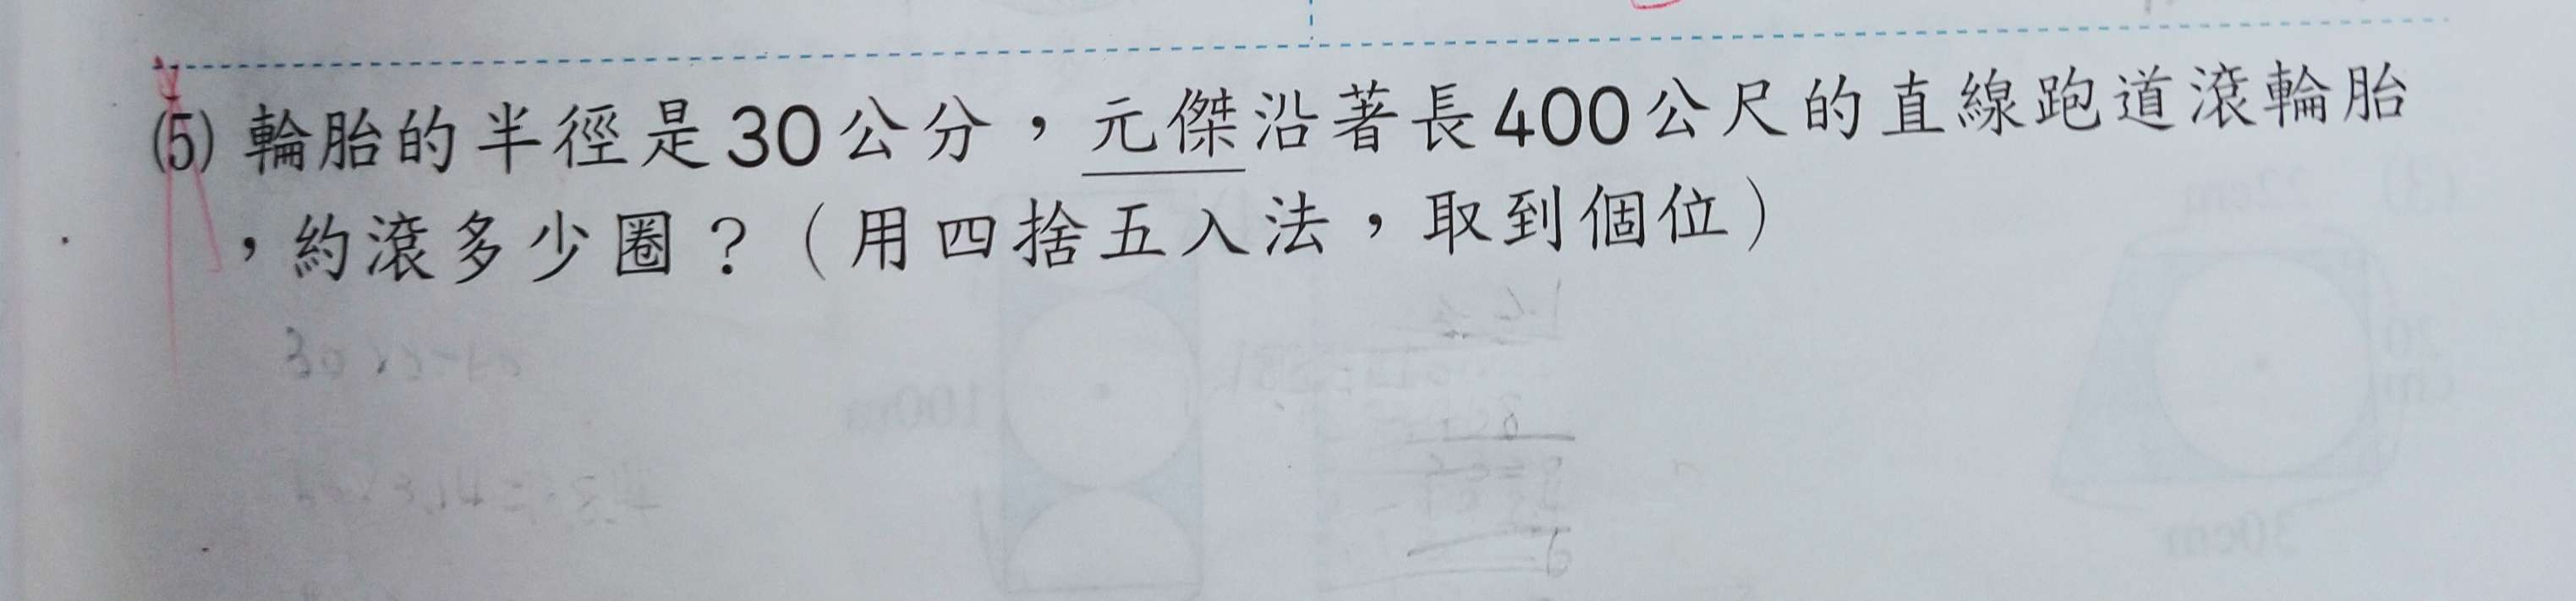 (5) 輪胎的半徑是30公分，元傑沿著長400公尺的直線跑道滾輪胎
，約滾多少圈？（用四捨五入法，取到個位）